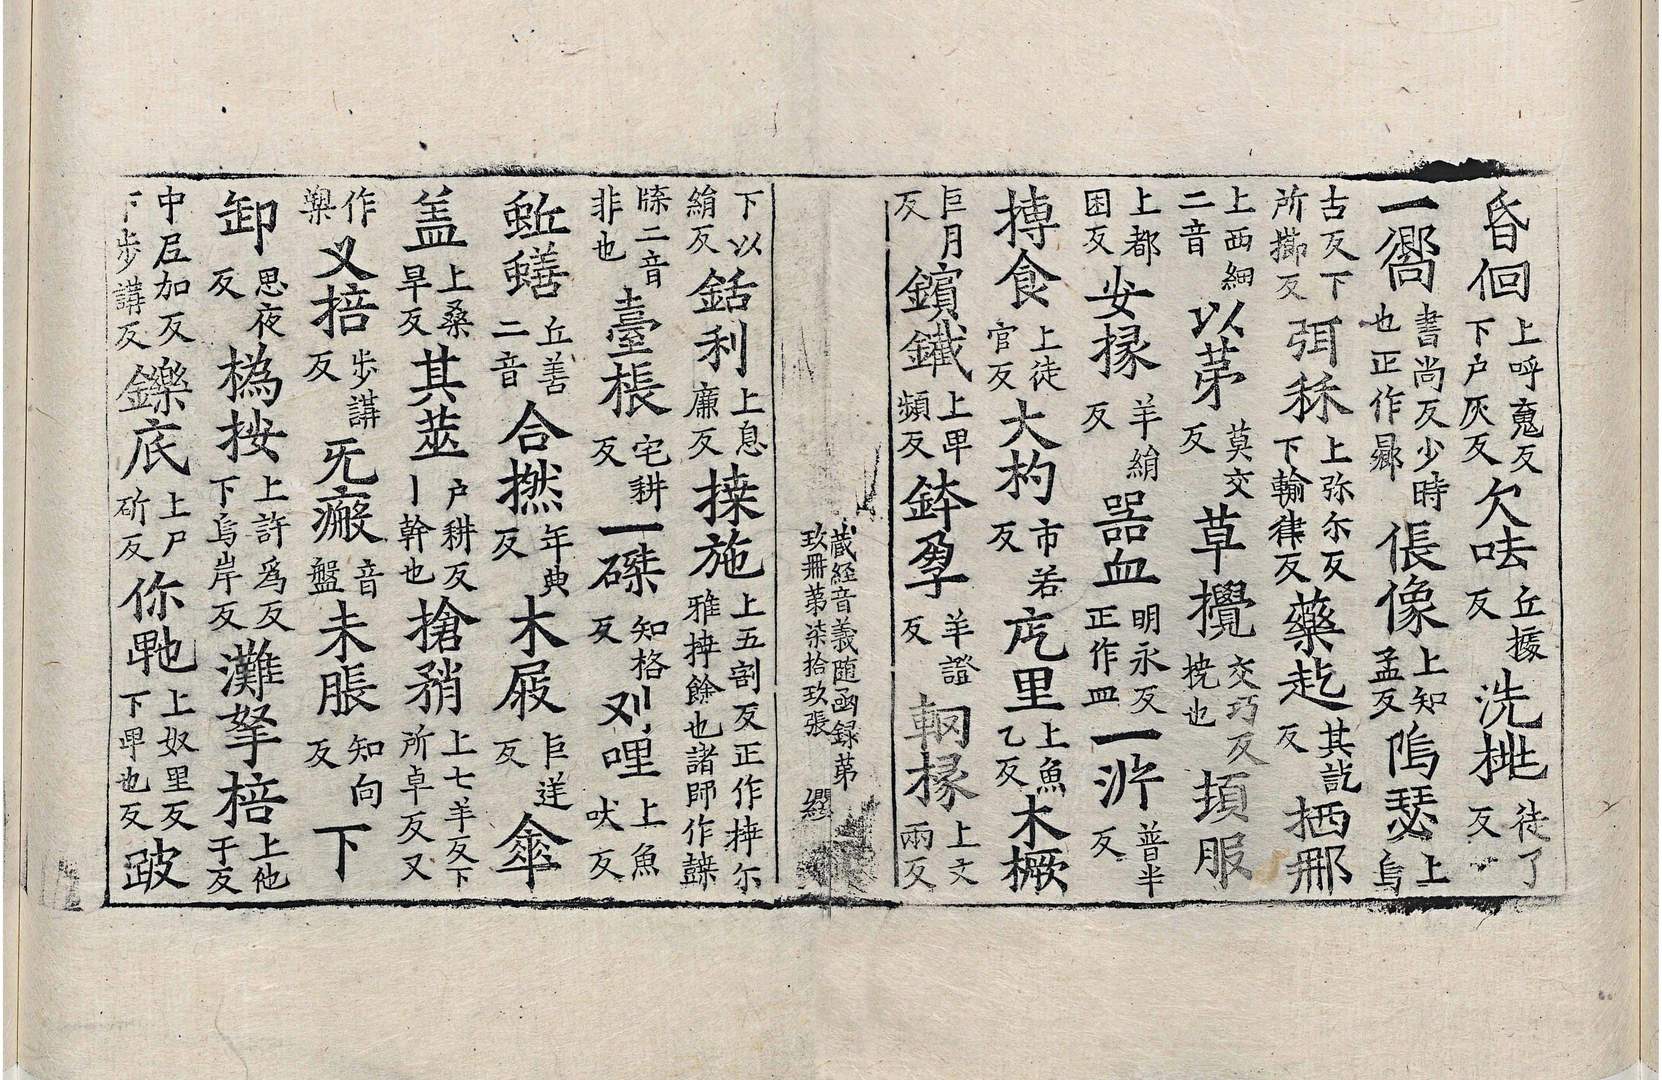 昏佪上呼䰟反下户灰反欠呿丘據反洗桃徒了反
一嚮書尚反少時也正作曏倀像上知孟反隖瑟上烏
古反下所櫛反弭秫上弥尓反下輸律反藥訖其訖反栖那
上西細二音以茅莫交反草攪交巧反撓也㨞服
上都困反㚢掾羊絹反噐血明永反正作皿一泲普半反
搏食上徒官反大杓市若反疙里上魚乙反木橛
巨月反鑌鐵上畀頻反鉢孕羊證反輞掾上文兩反
藏經音義随函録第玖冊第柒拾玖張
下以絹反銛利上息廉反𢷎施上五割反正作㨆尓雅㨆餘也諸師作蘖
㯟二音非也臺棖宅耕反一磔知格反刈哩上魚吠反
蚯蟮丘善二音合撚年典反木屐巨逆反傘
盖上桑旱反其莖户耕反丨幹也搶矟上七羊反下所卓反又
作槊又掊步講反旡瘢音盤未脹知向反下
卸思夜反撝按上許爲反下烏岸反灘拏掊上他干反
中𡰱加反下步講反鑠底上尸斫反你𤰞上奴里反下畀也反跛